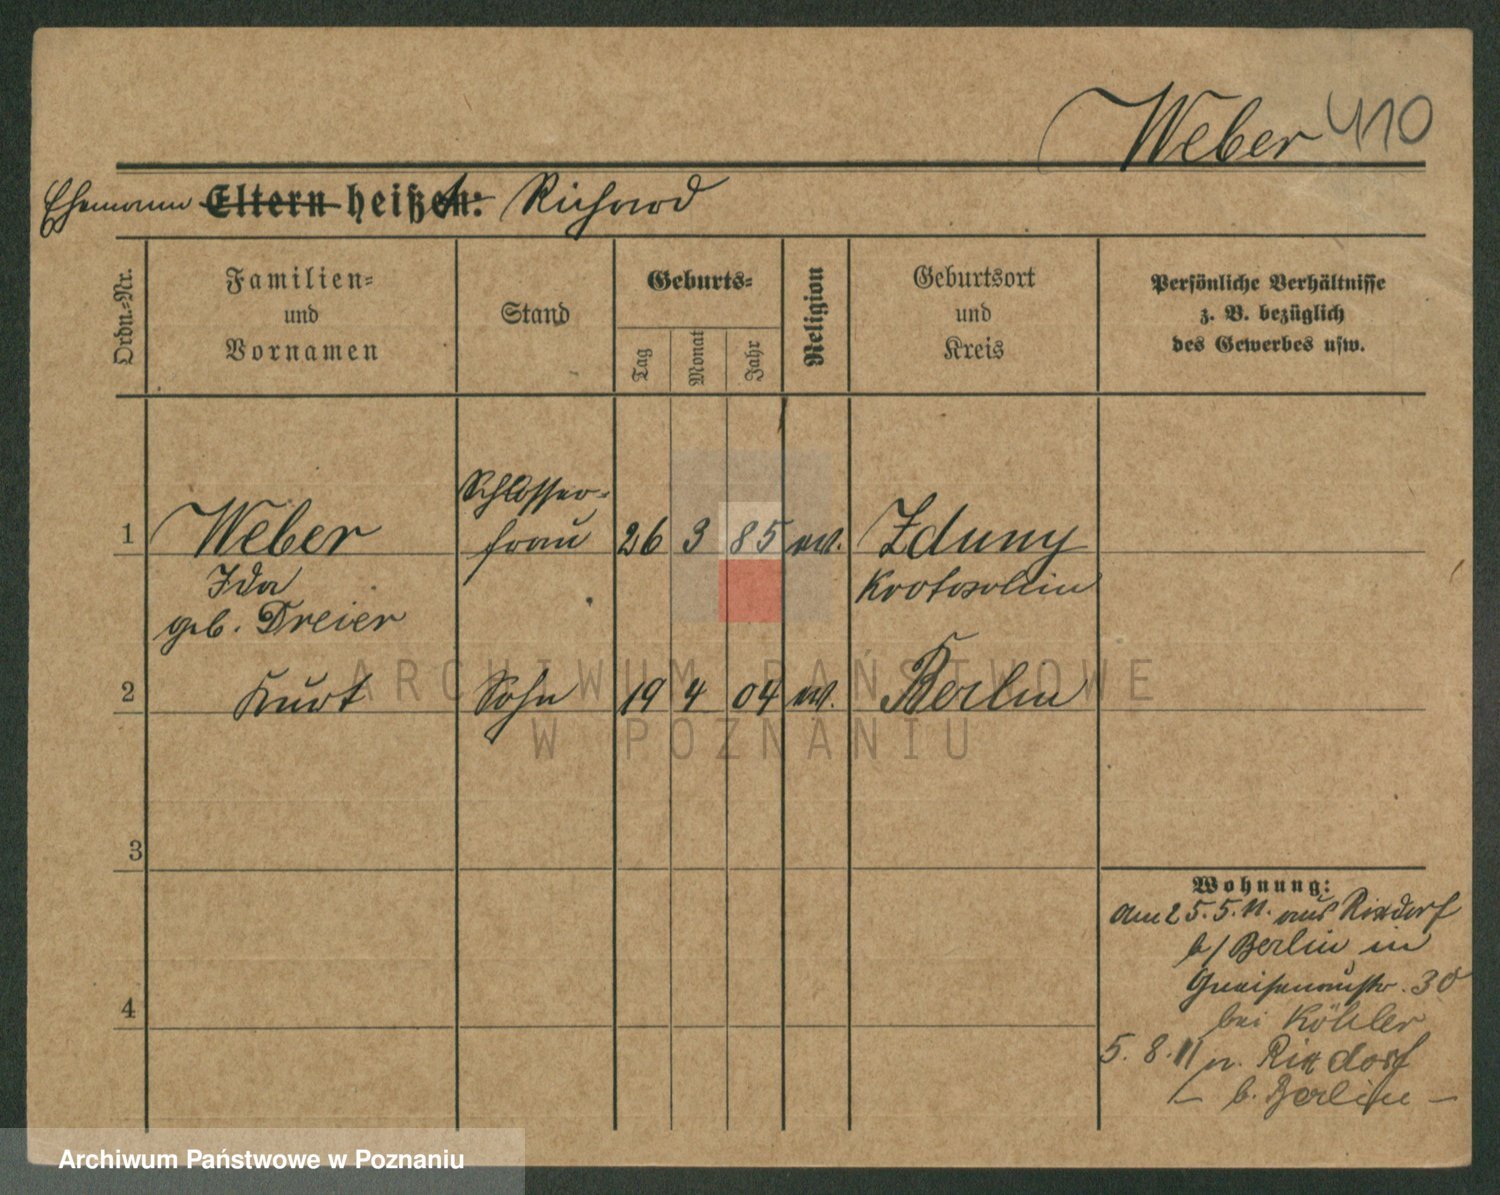 Weber 410
Ehemann Eltern heißt: Richard
Ordn.-Nr.
Familien-
und
Vornamen
Stand
Geburts-
Tag
Monat
Jahr
Religion
Geburtsort
und
Kreis
Persönliche Verhältnisse
z. B. bezüglich
des Gewerbes usw.
1 Weber Schlosser-
frau 26 3 85 ev. Zduny
Ida Krotoschin
geb. Dreier
2 Kurt Sohn 19 4 04 ev. Berlin
3
4
Wohnung:
Am 25.5.11. aus Rixdorf
b/Berlin in
Gneisenaustr. 30
bei Köhler
5.8.11 n. Rixdorf
b. Berlin
ARCHIWUM PAŃSTWOWE
W POZNANIU
Archiwum Państwowe w Poznaniu